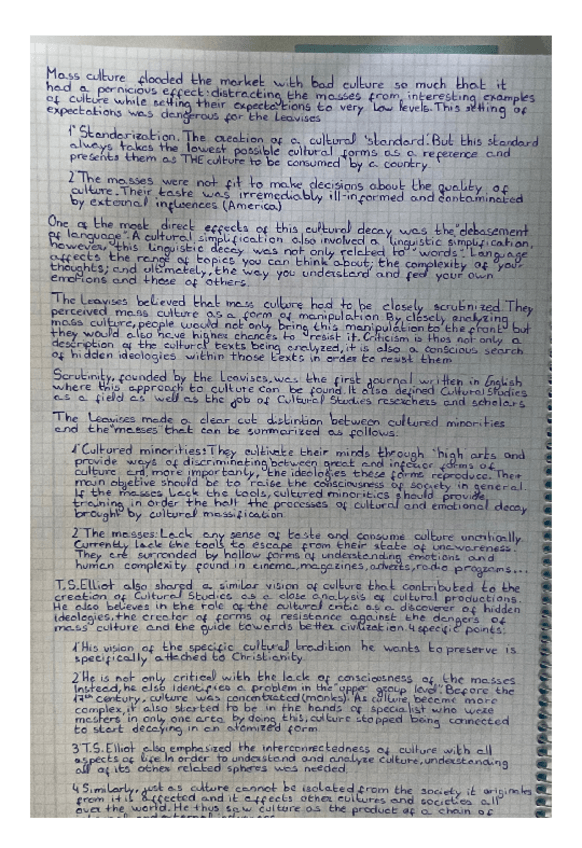 Mass culture flooded the market with bad culture so much that it
had a pernicious effect: distracting the masses from interesting examples
of culture while setting their expectations to very low levels. This setting of
expectations was dangerous for the Leavises
1º Standarization. The creation of a cultural 'standard'. But this standard
always takes the lowest possible cultural forms as a reference and
presents them as THE culture to be consumed by a country.
2 The masses were not fit to make decisions about the quality of
culture. Their taste was irremediably ill-informed and contaminated
by external influences (America)
One of the most direct effects of this cultural decay was the "debasement
of language". A cultural simplification also involved a linguistic simplification,
however, this linguistic decay was not only related to "words". Language
affects the range of topics you can think about; the complexity of your
thoughts; and ultimately, the way you understand and feel your own
emotions and those of others.
The Leavises believed that mass culture had to be closely scrutinized. They
perceived mass culture as a form of manipulation. By closely analyzing
mass culture, people would not only bring this manipulation to the front but
they would also have higher chances to resist it. Criticism is thus not only a
description of the cultural texts being analyzed, it is also a conscious search
of hidden ideologies within those texts in order to resist them
Scrutinity, founded by the Leavises, was the first journal written in English
where this approach to culture can be found. It also defined Cultural Studies
as a field as well as the job of Cultural Studies reseachers and scholars
The Leavises made a clear cut distintion between cultured minorities
and the "masses" that can be summarized as follows.
1º Cultured minorities: They cultivate their minds through "high arts and
provide ways of discriminating between great and inferior forms of
culture and, more importantly, the ideologies these forms reproduce. Their
main objetive should be to raise the consciousness of society in general.
If the masses lack the tools, cultured minorities should provide
training in order the halt the processes of cultural and emotional decay
brought by cultural massification.
2 The masses: Lack any sense of taste and consume culture uncritically.
Currently lack the tools to escape from their state of unawareness.
They are surronded by hollow forms of understanding emotions and
human complexity found in cinema, magazines, adverts, radio programs,...
T.S. Elliot also shared a similar vision of culture that contributed to the
creation of Cultural Studies as a close analysis of cultural productions.
He also believes in the role of the cultural critic as a discoverer of hidden
ideologies, the creator of forms of resistance against the dangers of
mass culture and the guide towards better civilization. 4 specific points:
1º His vision of the specific cultural tradition he wants to preserve is
specifically attached to Christianity
2 He is not only critical with the lack of consciosness of the masses
Instead, he also identifies a problem in the "upper group level". Before the
17th century, culture was concentrated (monks). As culture became more
complex, it also started to be in the hands of specialist who were
masters in only one area by doing this, culture stopped being connected
to start decaying in an atomized form
3 T.S. Elliot also emphasized the interconnectedness of culture with all
aspects of life. In order to understand and analyze culture, understanding
all of its other related spheres was needed
4 Similarly, just as culture cannot be isolated from the society it originates
from it is affected and it affects other cultures and societies all
over the world. He thus saw culture as the product of a chain of